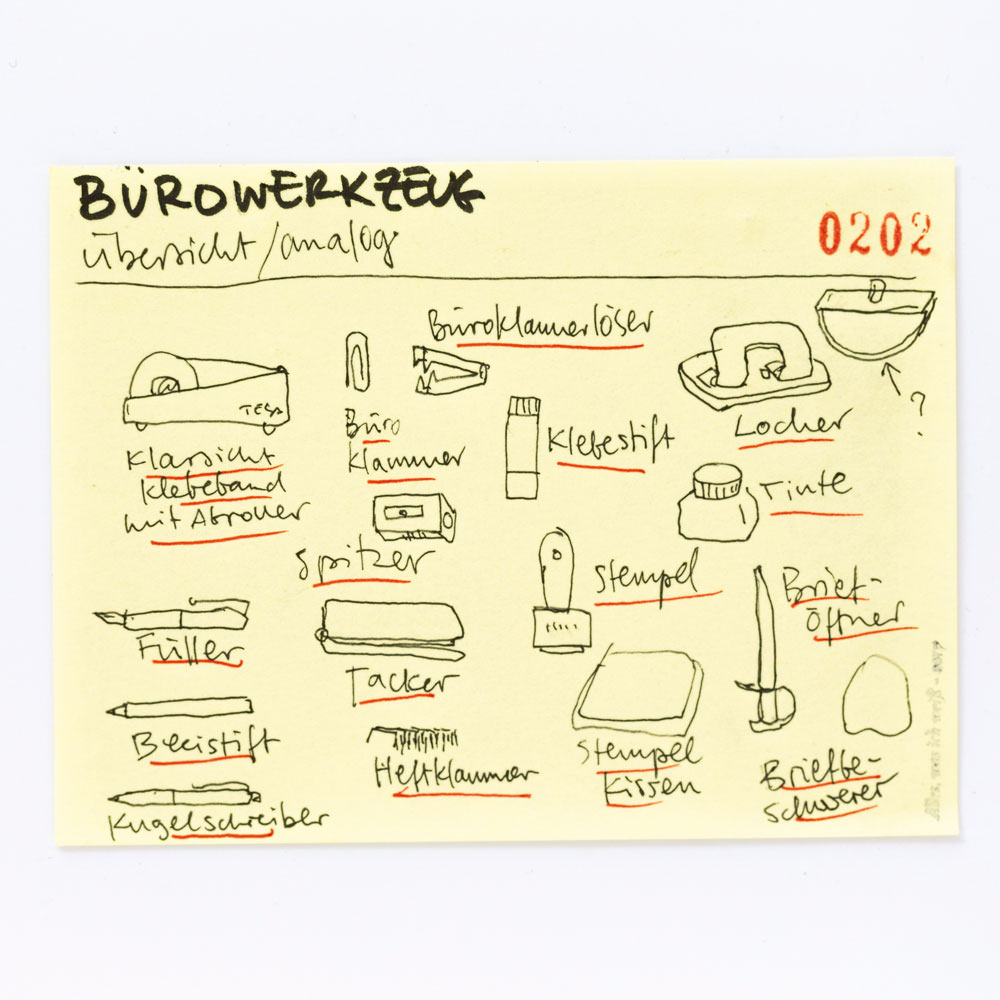 BÜROWERKZEUG
übersicht/analog
0202
Büroklammerlöser
TESA
?
Büro
klammer
Klebestift
Locher
Klarsicht
Klebeband
mit Abroller
Tinte
Spitzer
Stempel
Brief-
Öffner
Füller
Tacker
Bleistift
Heftklammer
Stempel
Kissen
Briefbe-
schwerer
Kugelschreiber
Alles, was ich weiß